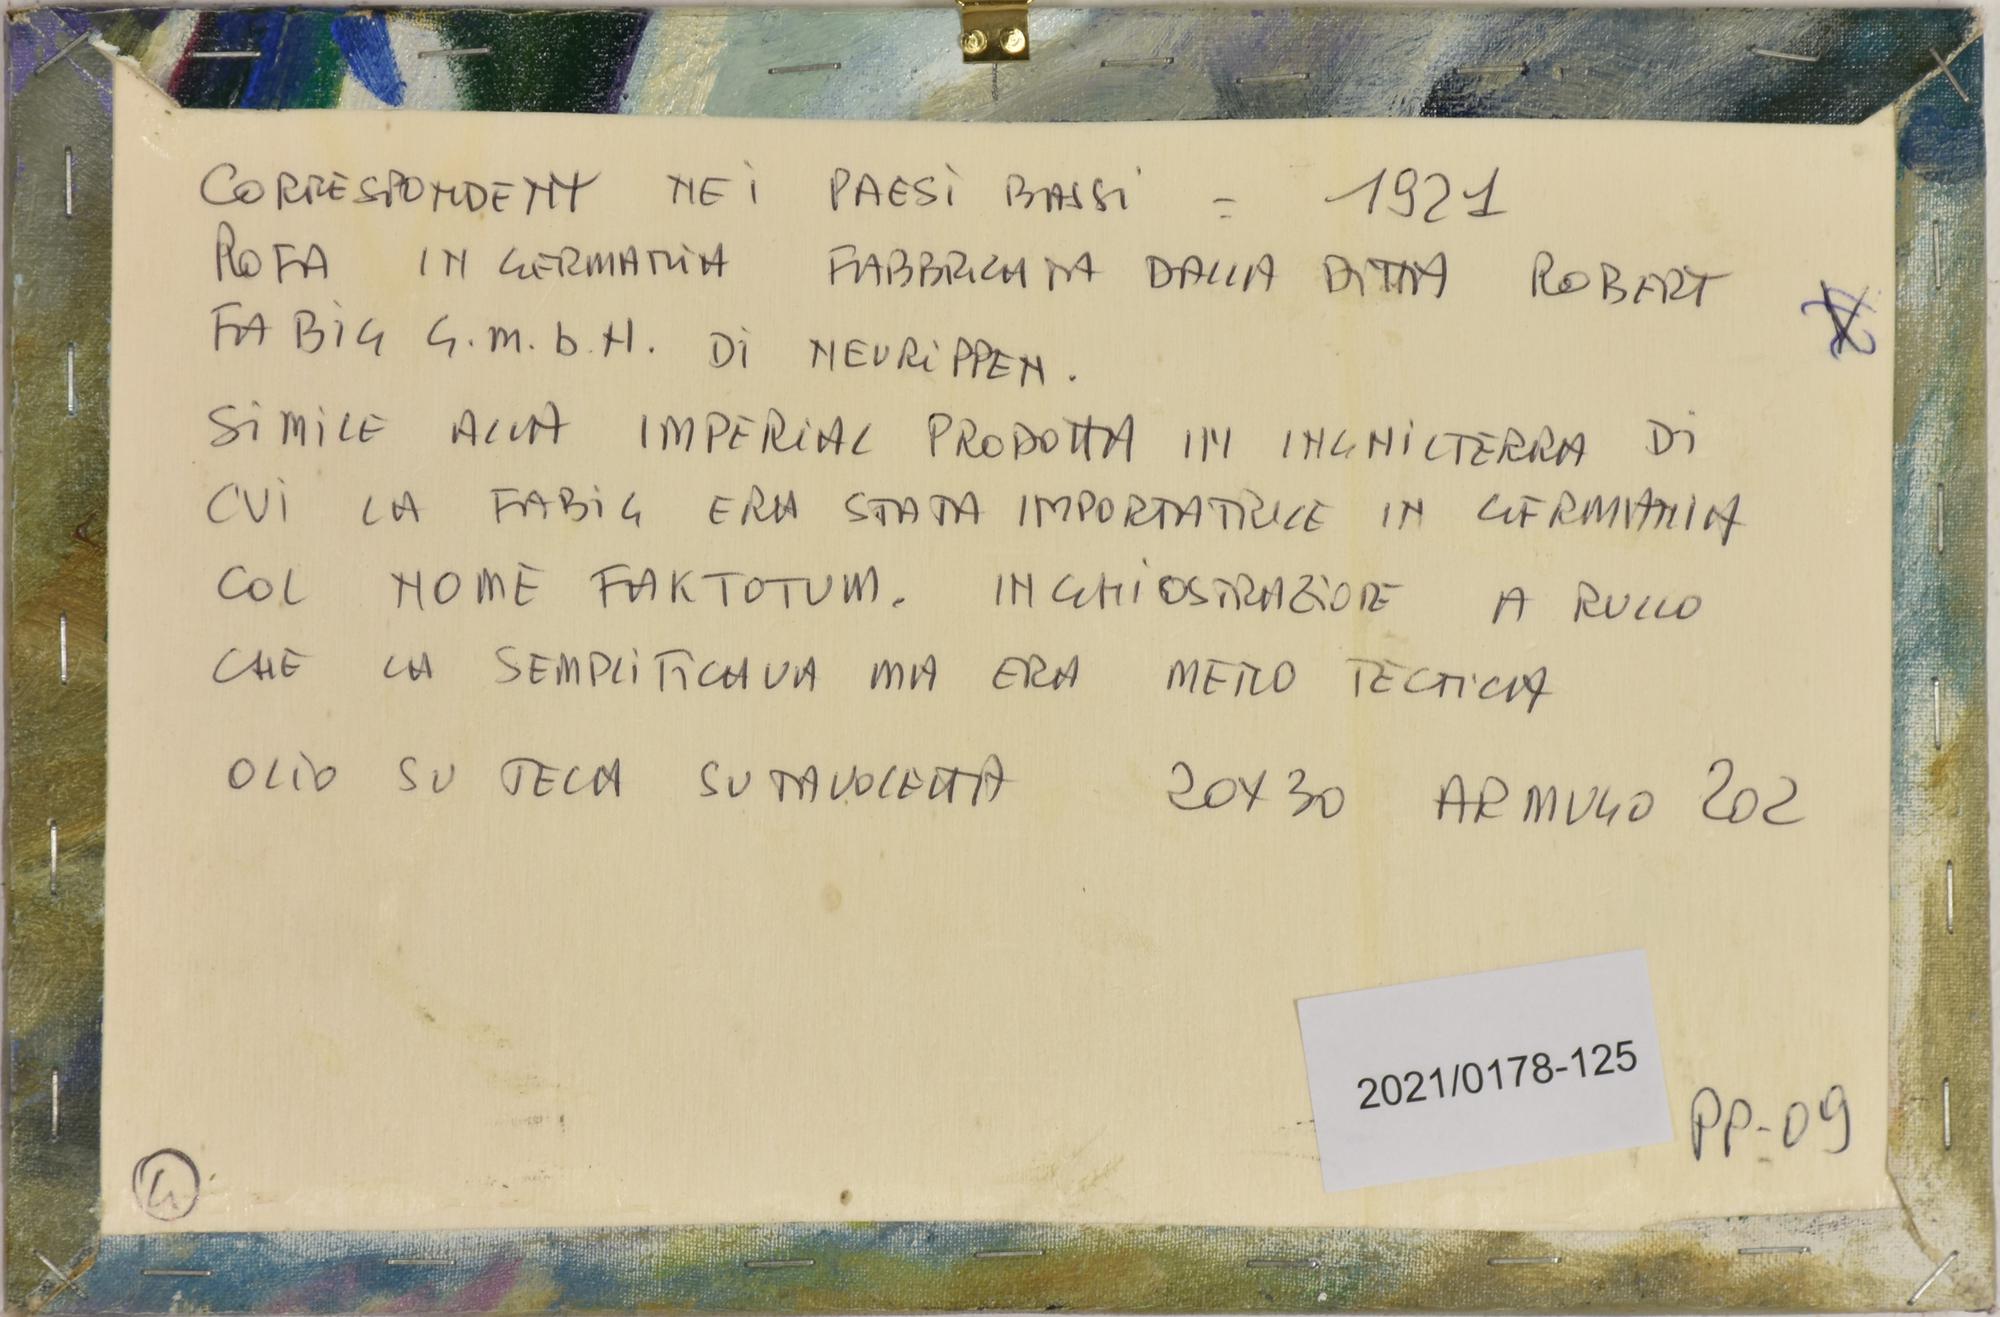 CORRESPONDENT NEI PAESI BASSI = 1921
ROFA IN GERMANIA FABBRICATA DALLA DITTA ROBERT
FABIG G.m.b.H. DI NEURIPPEN.
SIMILE ALLA IMPERIAL PRODOTTA IN INGHILTERRA DI
CUI LA FABIG ERA STATA IMPORTATRICE IN GERMANIA
COL NOME FAKTOTUM. INCHIOSTRAZIONE A RULLO
CHE LA SEMPLIFICAVA MA ERA MENO TECNICA
OLIO SU TELA SU TAVOLETTA 20X30 ARMUGO 202
2021/0178-125
PP-09